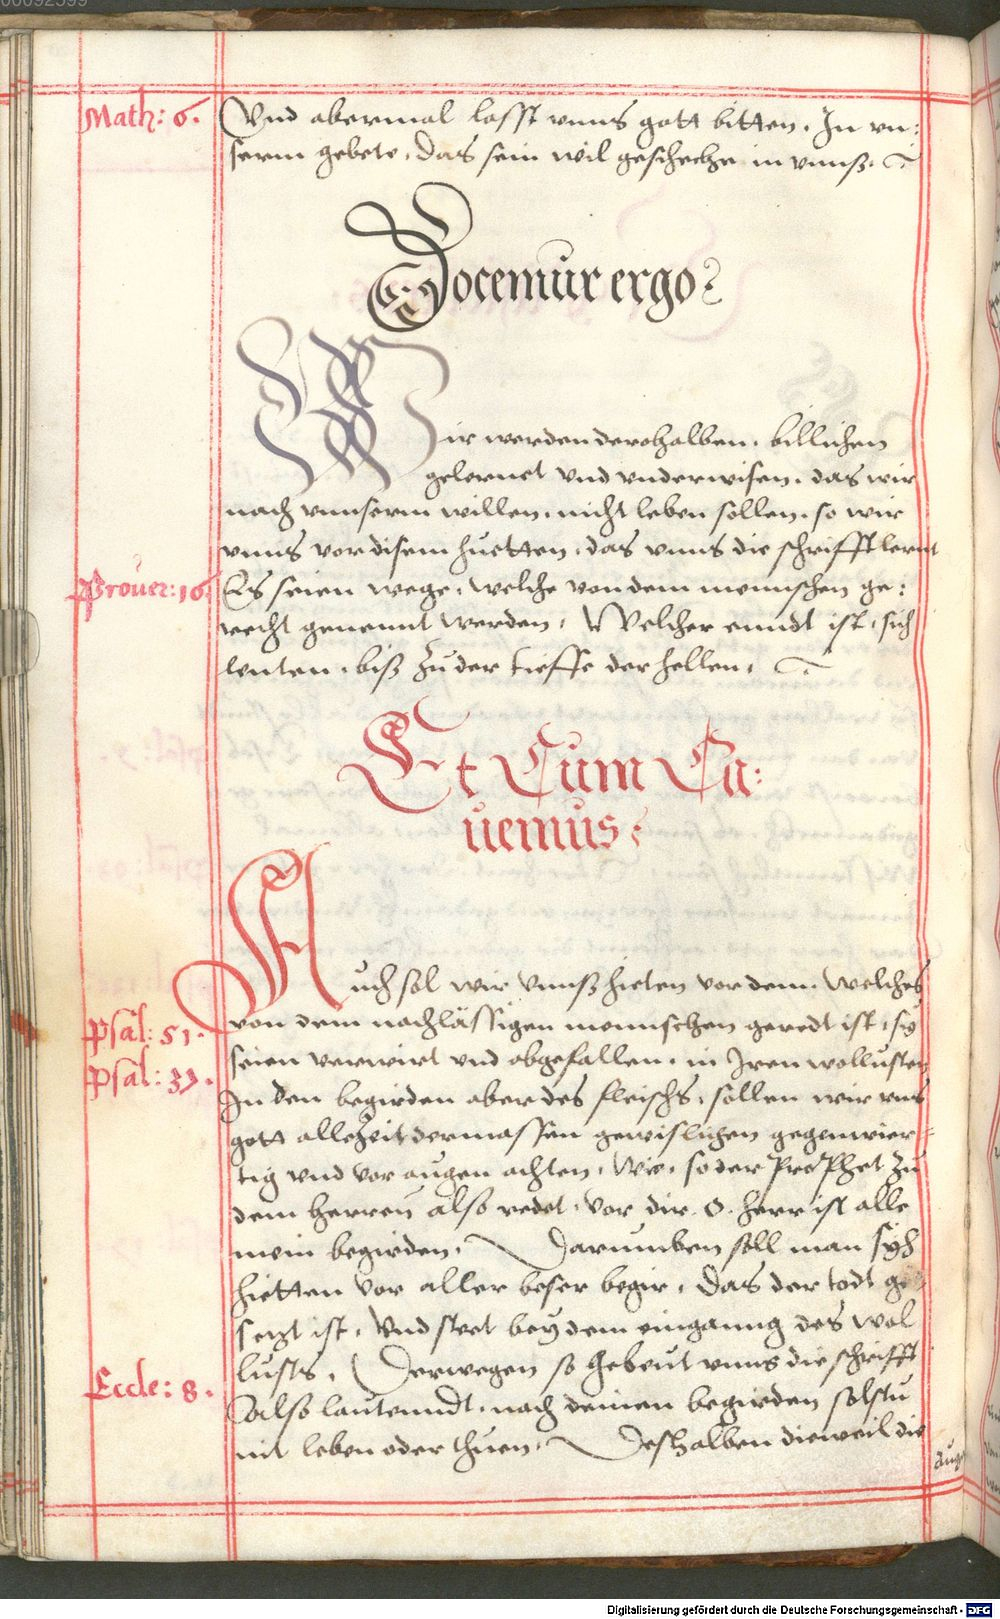 00092599
Math: 6.
Vnd abermal lasst vnns gott bitten. In vn:
serm gebete. das sein wil geschehe in vnnß.
Docemur ergo
Wir werden derohalben. billichen
gelernet vnd vnderwisen. das wir
nach vnnserm willen. nicht leben sollen. so wir
vnns vor disem huetten. das vnns die schrifft lernt
Prouer: 16
Es seien wege. welche von dem mennschen ge:
recht genennt werden. Welcher enndt ist. sich
lenten. biß zu der tieffe der hellen.
Et Cum Ca:
uemus:
Auch sol wir vnnß hieten vor dem. welches
Psal: 51.
von dem nachlässigen mennschen geredt ist. sy
Psal: 37.
seien verwirt vnd abgefallen. in Iren wollusten
In den begirden aber des fleischs. sollen wir vns
gott allezeit dermassen gewislichen gegenwier
tig vnd vor augen achten. Wie. so der Prophet zu
dem herren also redet. vor dir. O. herr ist alle
mein begirden. Darumben soll man sich
hietten vor aller beser begir. Das der todt ge
setzt ist. Vnd steet bey dem einganng des wol
lusts. Derwegen so gebeut vnns die schrifft
Eccle: 8.
also lautenndt. nach deinen begirden solstu
nit leben oder thuen. Deshalben dieweil die
aug
Digitalisierung gefördert durch die Deutsche Forschungsgemeinschaft - DFG